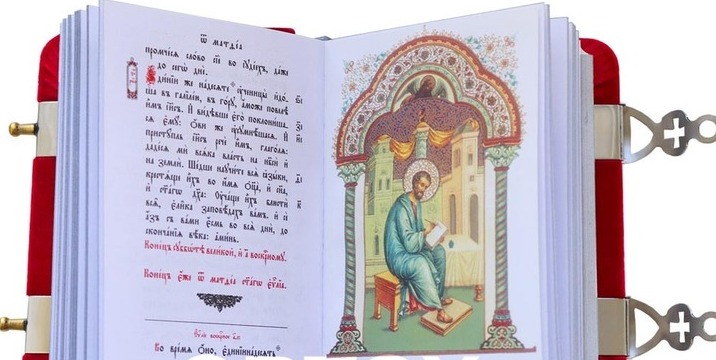 Ѿ матѳеа
промчесѧ слово сїе во їꙋдеехъ, даже
до сегѡ дне.
Єдїнїи же надесѧте ᲂу҆ченицы идо-
ша въ галїлею, въ гору, аможе повеле
имъ їисъ. И видевше его поклонишасѧ
ємꙋ: Ѻви же ᲂу҆сꙋмнешасѧ. И
пристꙋпль їисъ рече имъ, глаголѧ:
дадесѧ ми всѧка власть на нб҃си и
на земли. Шедше наꙋчите всѧ ꙗзыки,
крестѧще ихъ во имѧ ѻц҃а, и сн҃а,
и ст҃агѡ дх҃а: Оучаще ихъ блюсти
всѧ, єлика заповедахъ вамъ. и се
азъ съ вами єсмь во всѧ дни, до
скончанїѧ века: аминь.
Конецъ сꙋбботе великой, и а҃ воскрномꙋ.
Конецъ єже ѿ матѳеа ст҃агѡ єѵ҃лїа.
Во времѧ оно, єдиннїинадесѧть